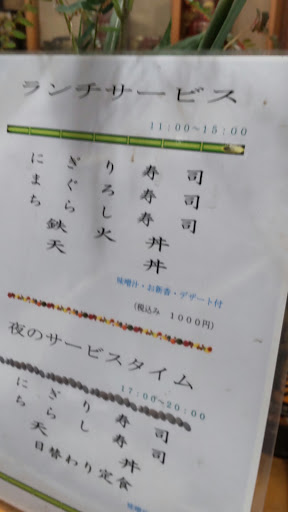 ランチサービス
11:00~15:00
にぎり寿司
まぐろ寿司
ちらし寿司
鉄火丼
天丼
味噌汁・お新香・デザート付
(税込み 1000円)
夜のサービスタイム
17:00~20:00
にぎり寿司
ちらし寿司
天丼
日替わり定食
味噌汁